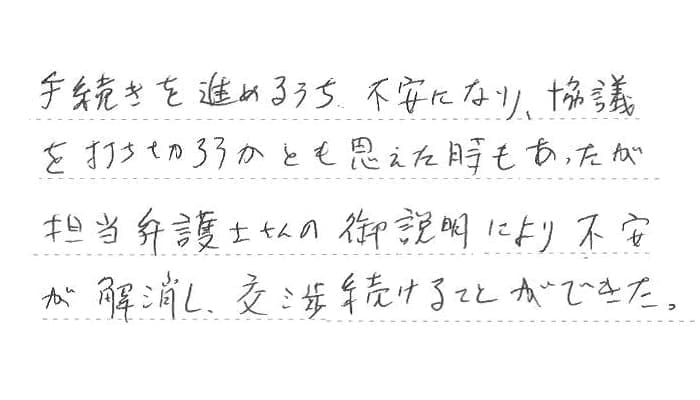 手続きを進めるうち、不安になり、協議
を打ち切ろうかとも思えた時もあったが
担当弁護士さんの御説明により不安
が解消し、交渉続けることができた。